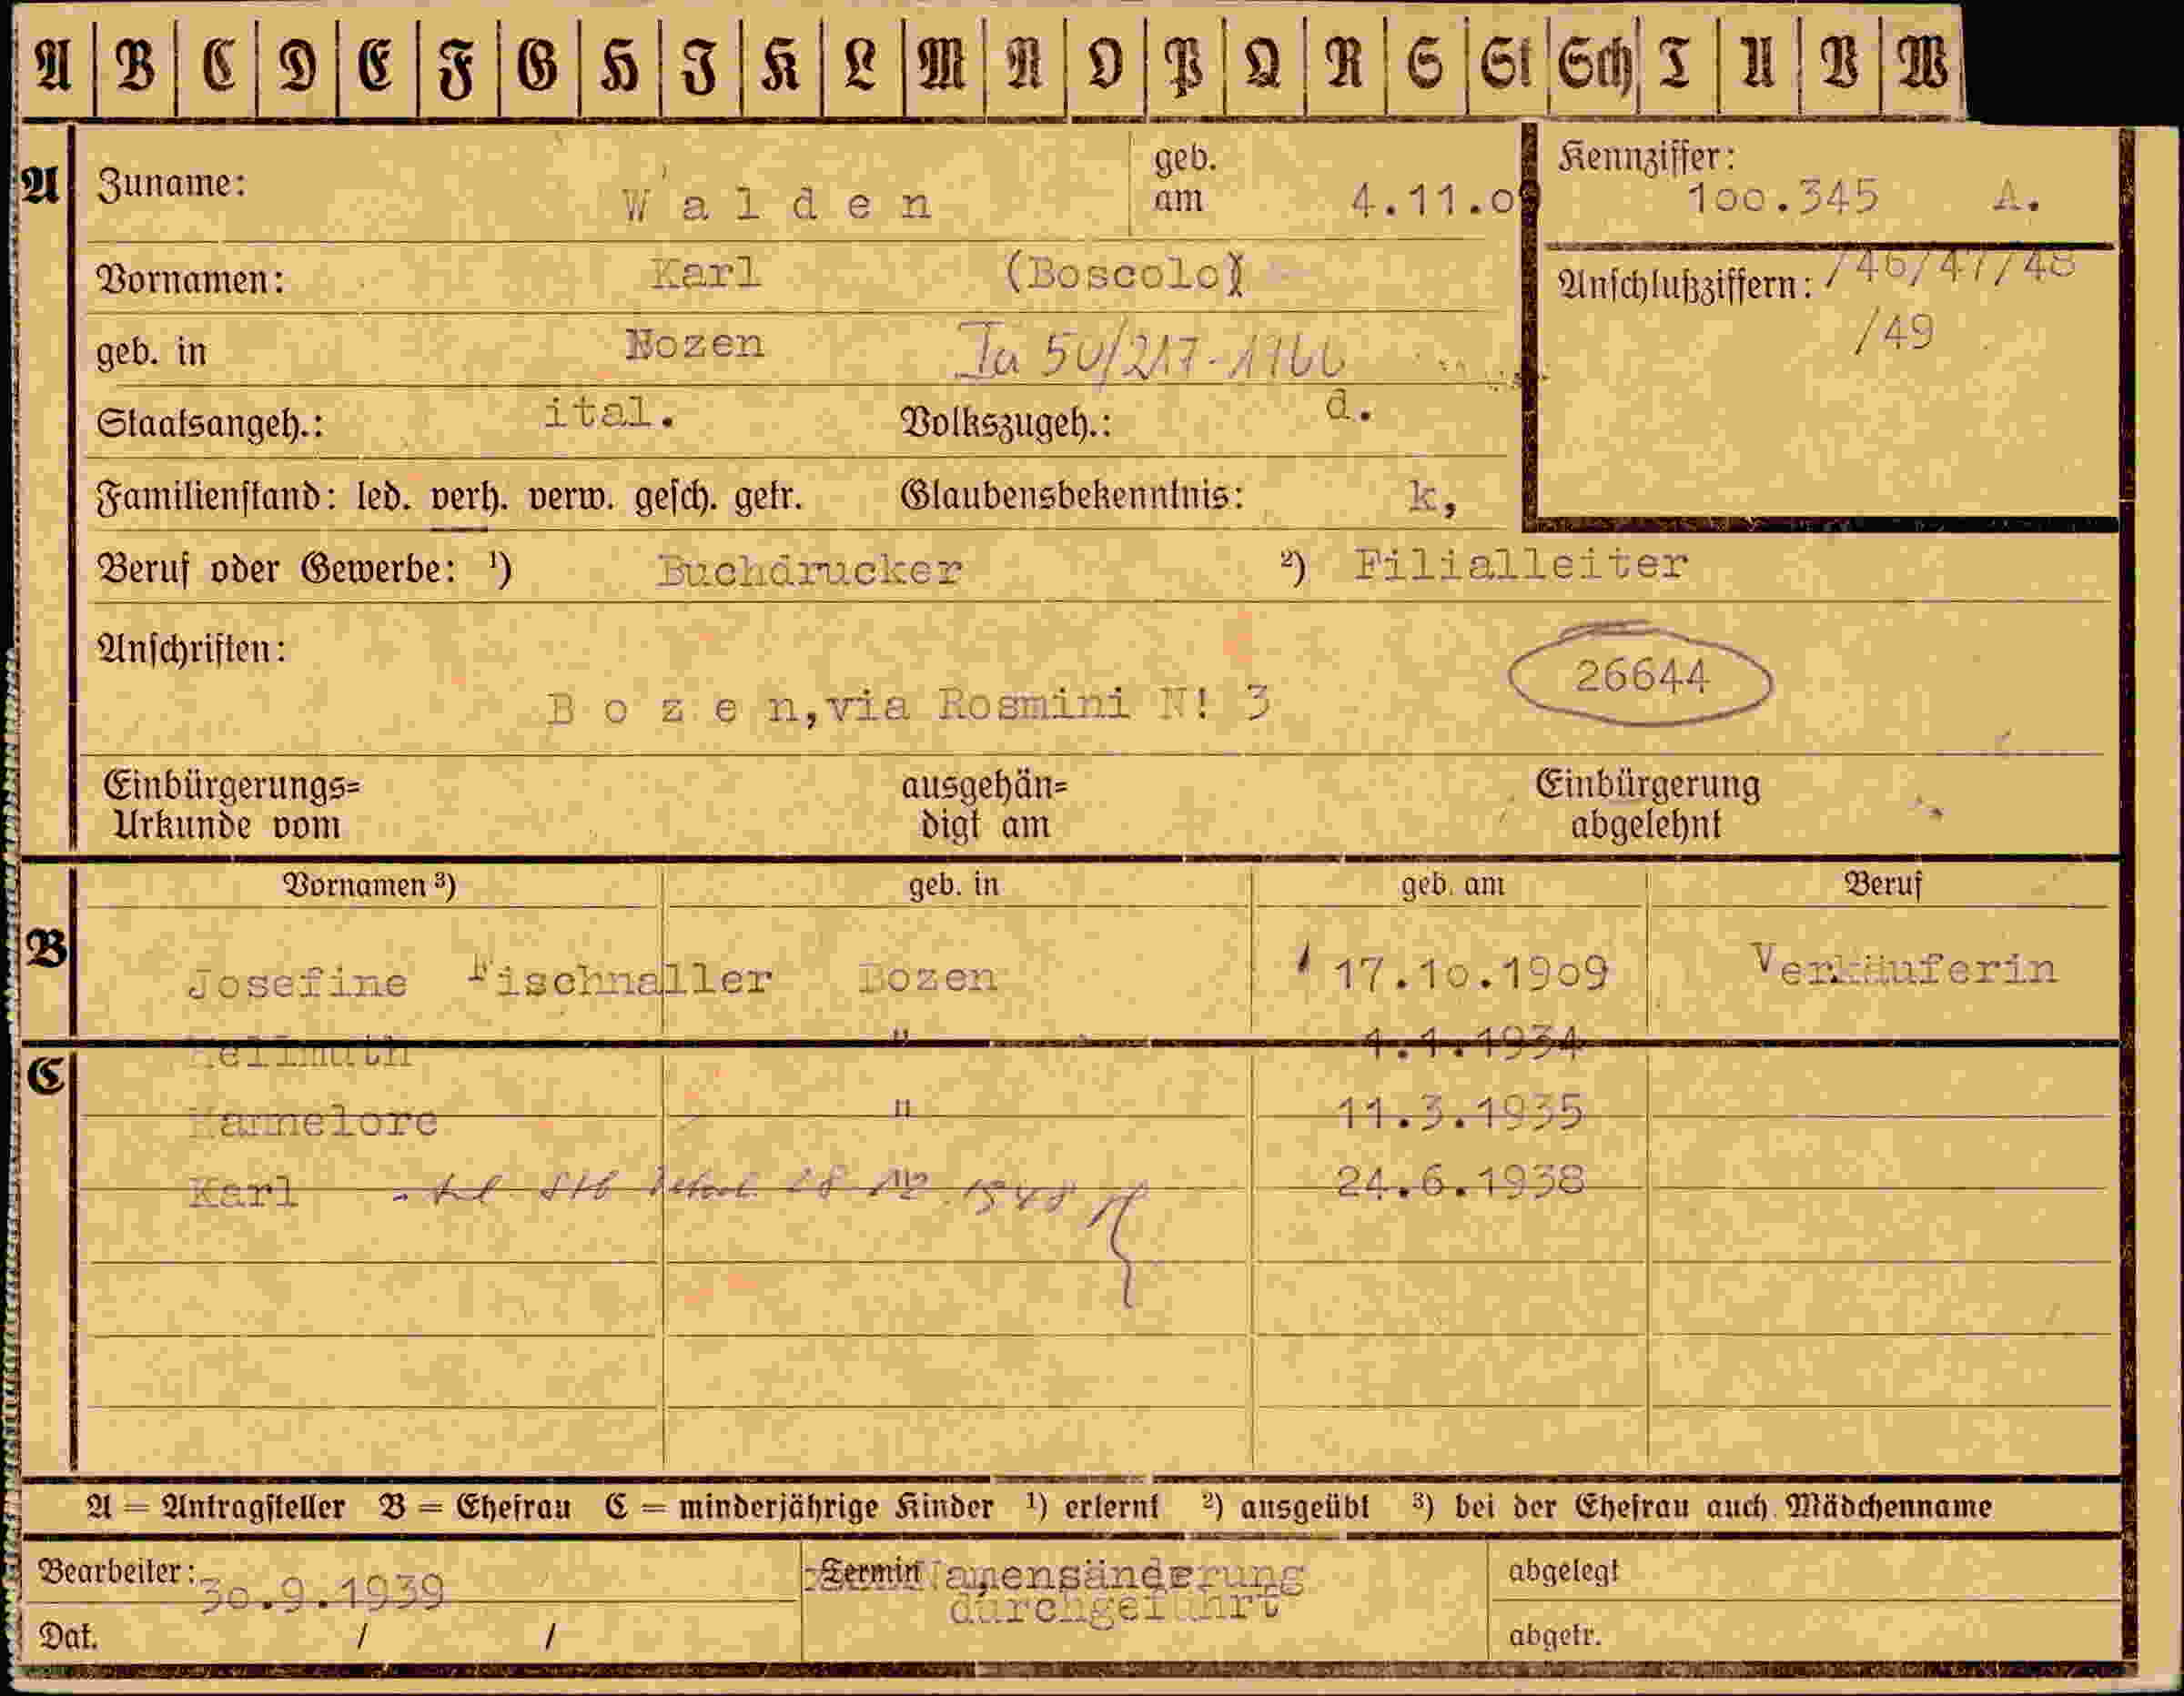 A B C D E F G H I K L M N O P Q R S St Sch T U V W
A Zuname: Walden geb. am 4.11.09 Kennziffer: 100.345 A.
Vornamen: Karl (Boscolo) Anschlußziffern: /46/47/48
/49
geb. in Bozen Ia 50/217-1766
Staatsangeh.: ital. Volkszugeh.: d.
Familienstand: led. verh. verw. gesch. getr. Glaubensbekenntnis: k,
Beruf oder Gewerbe: ¹) Buchdrucker ²) Filialleiter
Anschriften: 26644
Bozen, via Rosmini N! 3
Einbürgerungs= ausgehän= Einbürgerung
Urkunde vom digt am abgelehnt
Vornamen ³) geb. in geb. am Beruf
B Josefine Fischnaller Bozen 17.10.1909 Verkäuferin
Hellmuth " 1.1.1934
C
Hannelore " 11.3.1935
Karl 1948 24.6.1938
A = Antragsteller B = Ehefrau C = minderjährige Kinder ¹) erlernt ²) ausgeübt ³) bei der Ehefrau auch Mädchenname
Bearbeiter: 30.9.1939 Termin Namensänderung abgelegt
durchgeführt
Dat. / / abgetr.